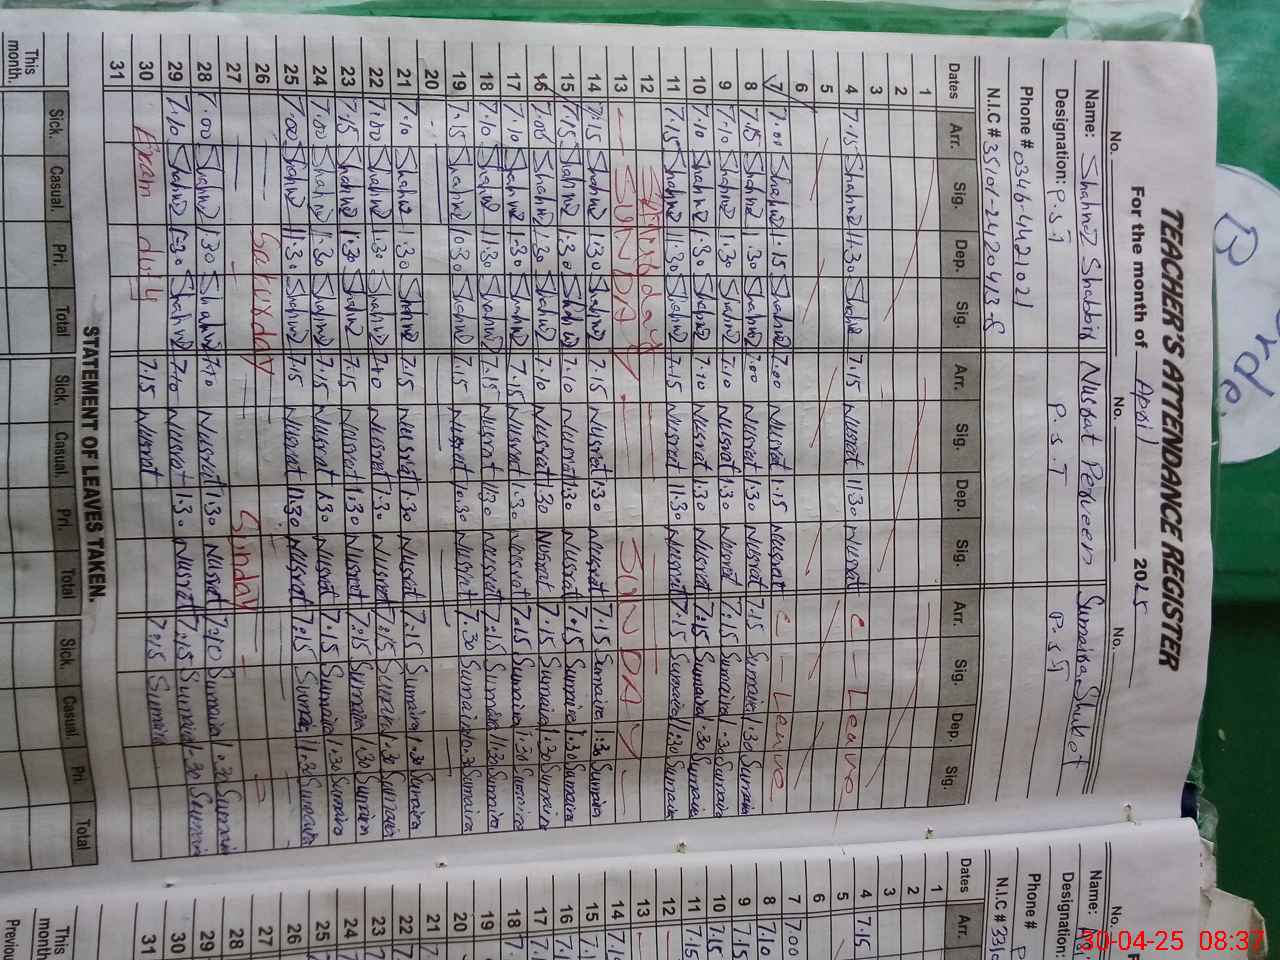 TEACHER'S ATTENDANCE REGISTER
For the month of April 2025
No. No. No.
Name: Shahnaz Shabbir Nusrat Perveen Sumaira Shuket
Designation: P.S.T P.S.T P.ST
Phone # 0346-4421021
N.I.C #
Dates Arr. Sig. Dep. Sig. Arr. Sig. Dep. Sig. Arr. Sig. Dep. Sig.
1
2
3
4 7.15 Shahnaz 11.30 Shahnaz 7.15 Nusrat 11.30 Nusrat C - Leave
5
6
7 7.00 Shahnaz 1.15 Shahnaz 7.00 Nusrat 1.15 Nusrat C - Leave
8 7.15 Shahnaz 1.30 Shahnaz 7.00 Nusrat 1.30 Nusrat 7.15 Sumaira 1.30 Sumaira
9 7.10 Shahnaz 1.30 Shahnaz 7.10 Nusrat 1.30 Nusrat 7:15 Sumaira 1.30 Sumaira
10 7.10 Shahnaz 1.30 Shahnaz 7.10 Nusrat 1.30 Nusrat 7:15 Sumaira 1.30 Sumaira
11 7.15 Shahnaz 11.30 Shahnaz 7.15 Nusrat 11.30 Nusrat 7.15 Sumaira 11.30 Sumaira
12
13 SUNDAY SUNDAY
14 7.15 Shahnaz 1.30 Shahnaz 7.15 Nusrat 1.30 Nusrat 7.15 Sumaira 1.30 Sumaira
15 7.15 Shahnaz 1.30 Shahnaz 7.10 Nusrat 1.30 Nusrat 7:15 Sumaira 1.30 Sumaira
16 7.00 Shahnaz 1.30 Shahnaz 7.10 Nusrat 1.30 Nusrat 7.15 Sumaira 1.30 Sumaira
17 7.10 Shahnaz 1.30 Shahnaz 7.15 Nusrat 1.30 Nusrat 7.15 Sumaira 1.30 Sumaira
18 7.10 Shahnaz 11.30 Shahnaz 7.15 Nusrat 11.30 Nusrat 7.15 Sumaira 11.30 Sumaira
19 7.15 Shahnaz 10.30 Shahnaz 7.15 Nusrat 10.30 Nusrat 7.30 Sumaira 10.30 Sumaira
20
21 7.10 Shahnaz 1.30 Shahnaz 7.15 Nusrat 1.30 Nusrat 7.15 Sumaira 1.30 Sumaira
22 7.00 Shahnaz 1.30 Shahnaz 7.10 Nusrat 1.30 Nusrat 7:15 Sumaira 1.30 Sumaira
23 7.15 Shahnaz 1.30 Shahnaz 7.15 Nusrat 1.30 Nusrat 7:15 Sumaira 1.30 Sumaira
24 7.00 Shahnaz 1.30 Shahnaz 7.15 Nusrat 1.30 Nusrat 7.15 Sumaira 1.30 Sumaira
25 7.00 Shahnaz 11.30 Shahnaz 7.15 Nusrat 11.30 Nusrat 7:15 Sumaira 11.30 Sumaira
26 Saturday
27 Sunday
28 7.00 Shahnaz 1.30 Shahnaz 7.10 Nusrat 1.30 Nusrat 7:10 Sumaira 1.30 Sumaira
29 7.10 Shahnaz 1.30 Shahnaz 7.10 Nusrat 1.30 Nusrat 7.15 Sumaira 1.30 Sumaira
30 Exam duty 7.15 Nusrat 7:15 Sumaira
31
STATEMENT OF LEAVES TAKEN.
Sick. Casual. Pri. Total Sick. Casual. Pri. Total Sick. Casual Pri. Total
This month.
No.
Name:
Designation:
Phone #
N.I.C #
Dates Arr.
1
2
3
4 7.15
5
6
7 7.00
8 7.10
9 7.15
10 7.15
11 7.15
12
13
14
15
16
17
18
19
20
21
22
23
24
25
26
27
28
29
30
31
This month
Previous
30-04-25 08:37